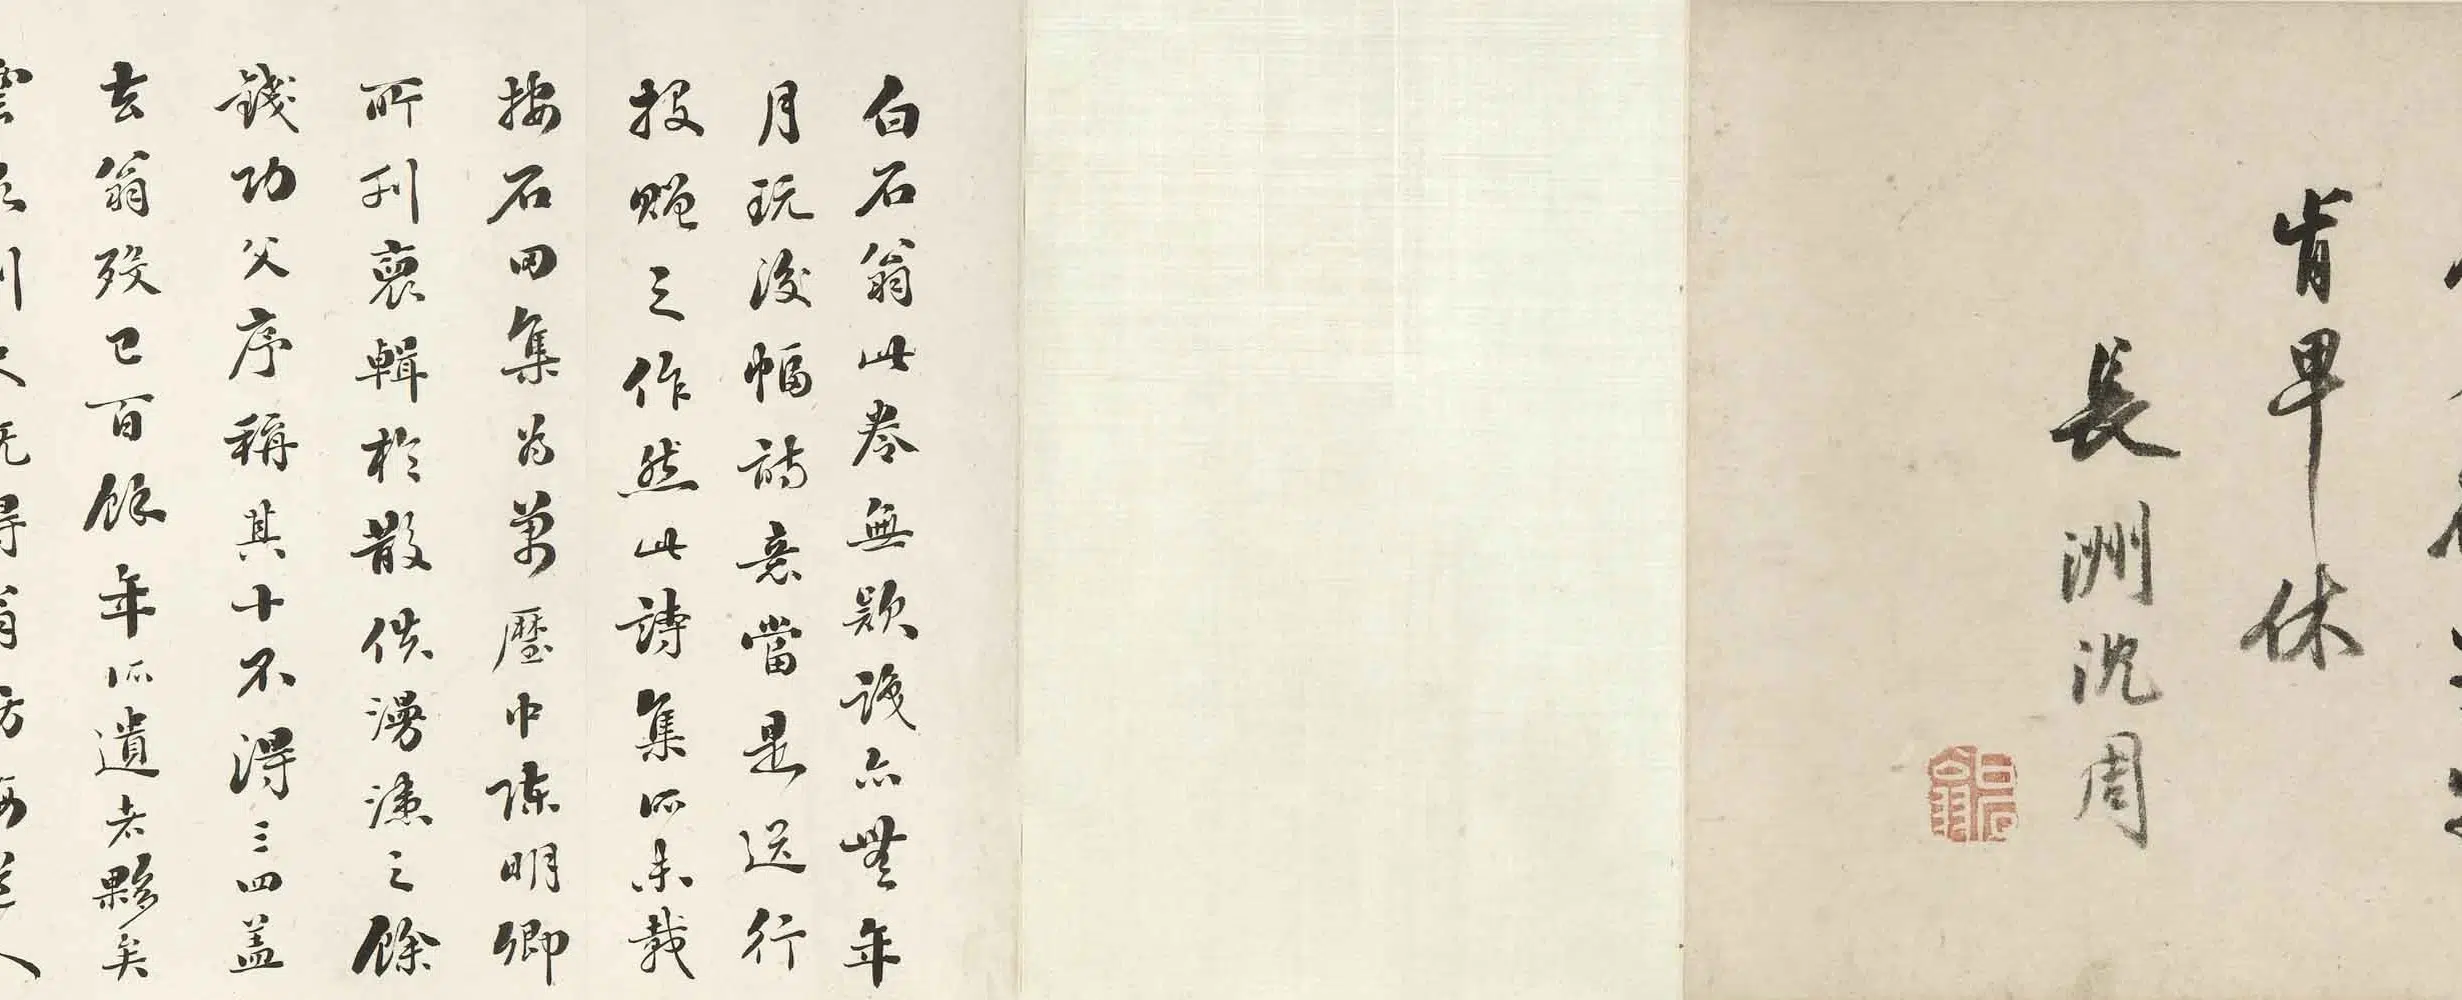 肯早休
長洲沈周
白石翁
白石翁此卷無款識亦無年
月玩後幅詩意當是送行
投贈之作然此詩集所未載
按石田集為萬曆中陳明卿
所刊裒輯於散佚漫漶之餘
錢功父序稱其十不得三四蓋
去翁歿已百餘年所遺者夥矣